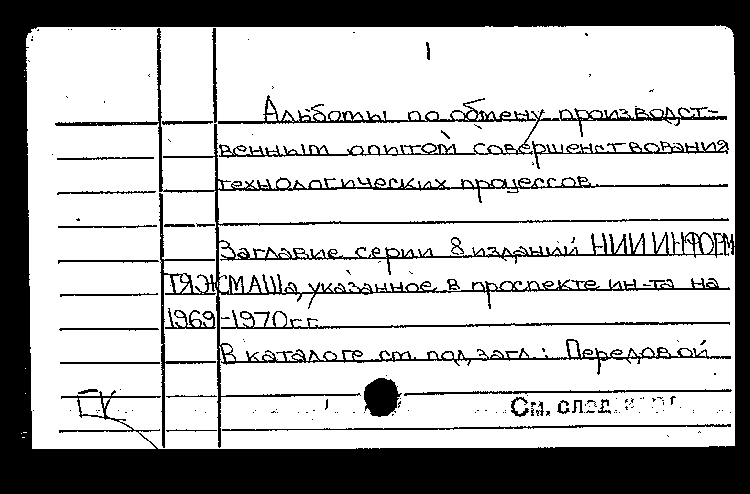 1
Альбомы по обмену производст-
венным опытом совершенствования
технологических процессов.
Заглавие серии 8 изданий НИИИНФОРМ
ТЯЖМАШа, указанное в проспекте ин-та на
1969-1970г.г.
В каталоге см. под загл.: Передовой
ГК
См. след.